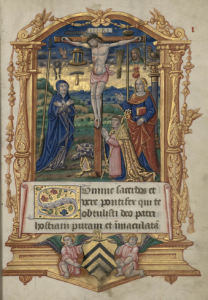 Summe sacerdos et
vere pontifex qui te
obtulisti deo patri
hostiam puram et immaculatā